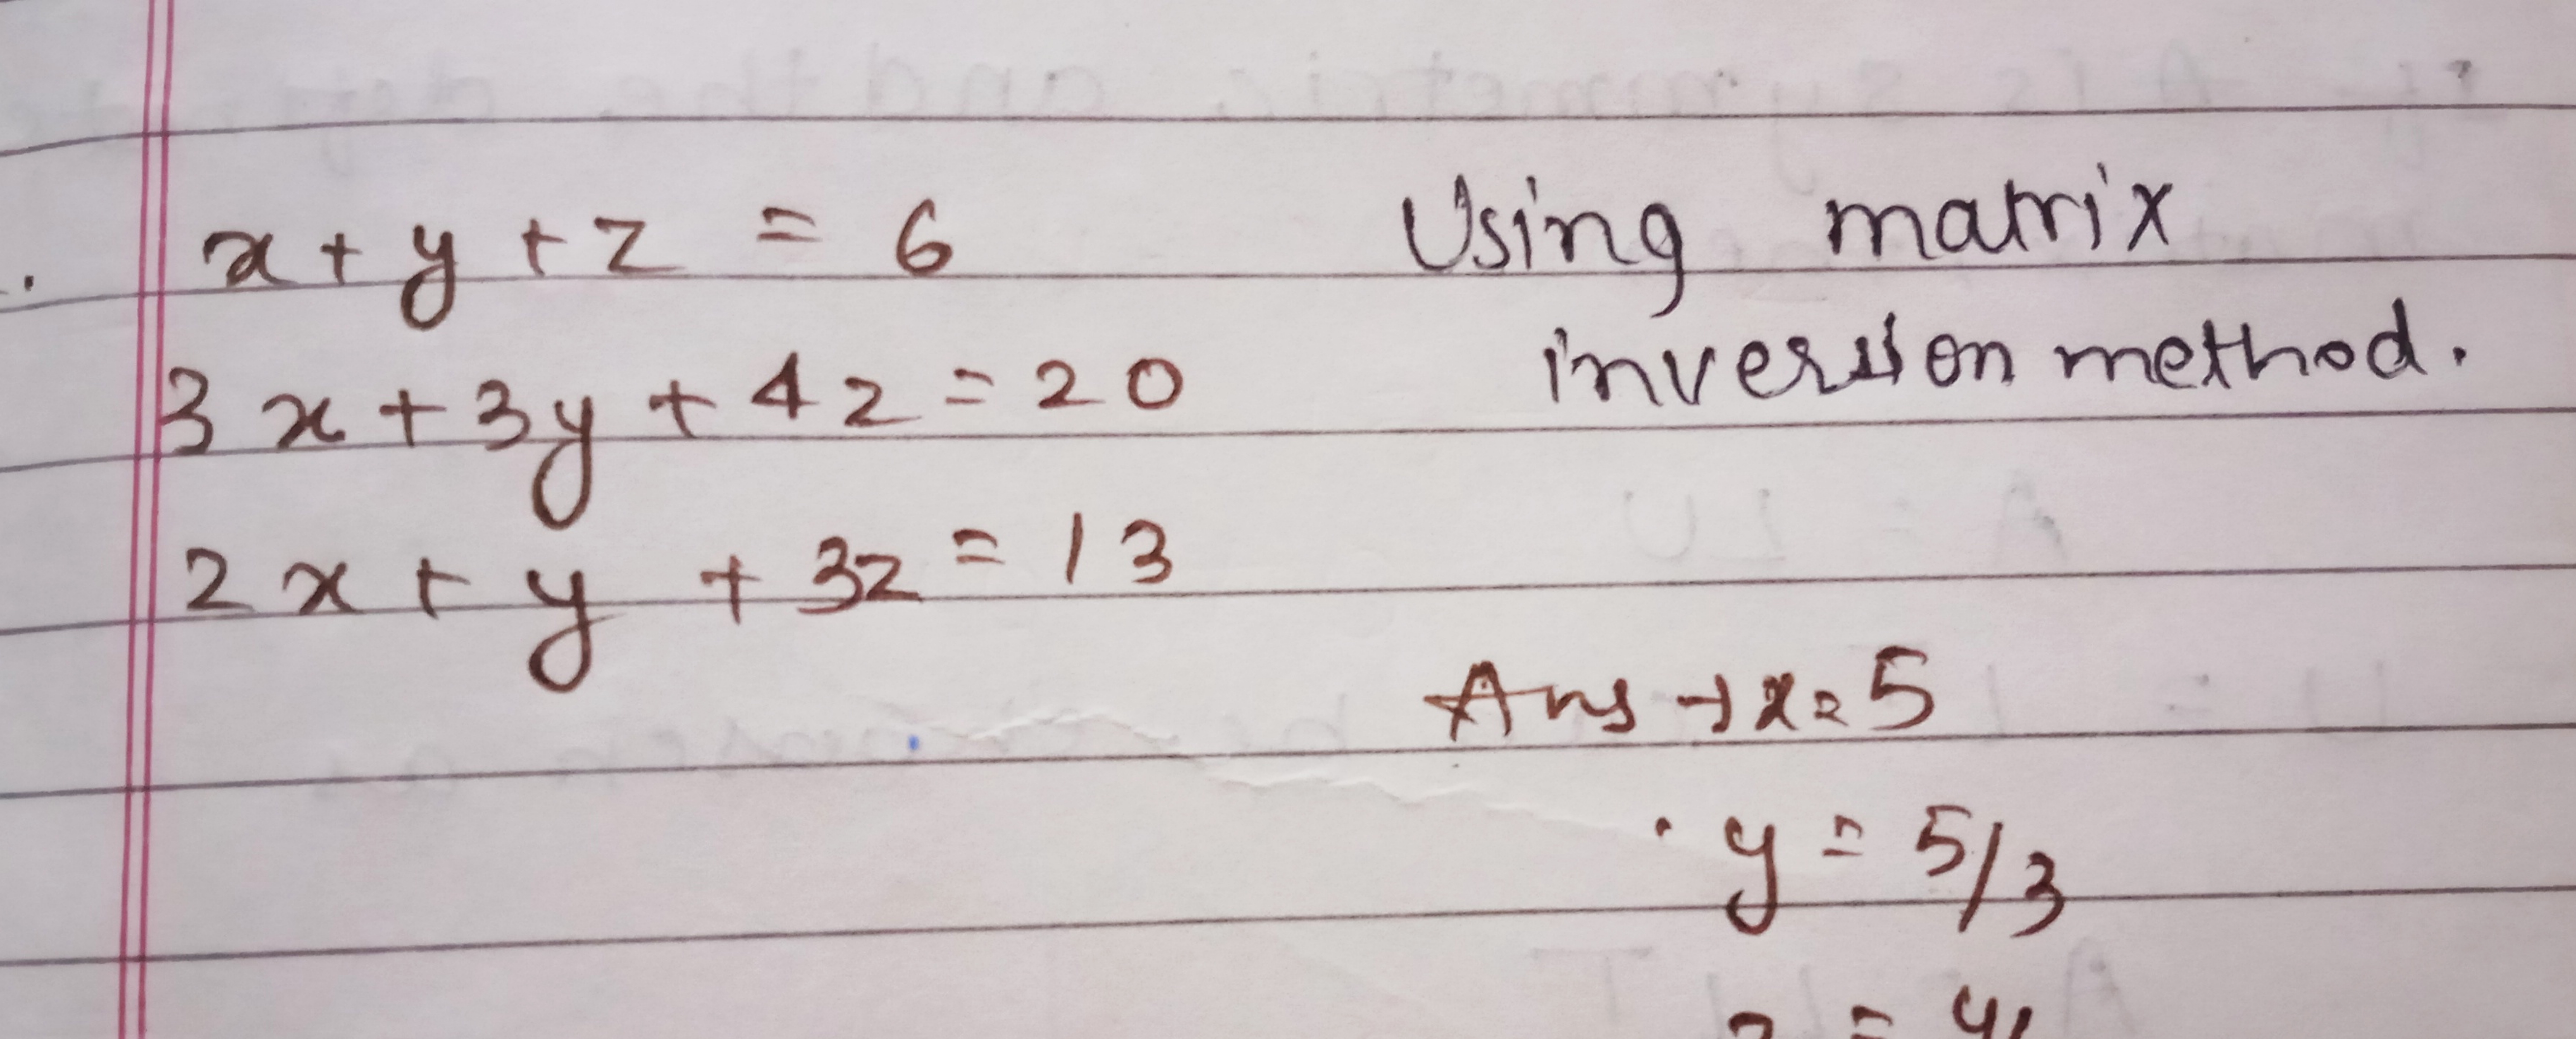 x + y + z = 6 Using matrix
3x + 3y + 4z = 20 inversion method.
2x + y + 3z = 13
Ans → x = 5
y = 5/3